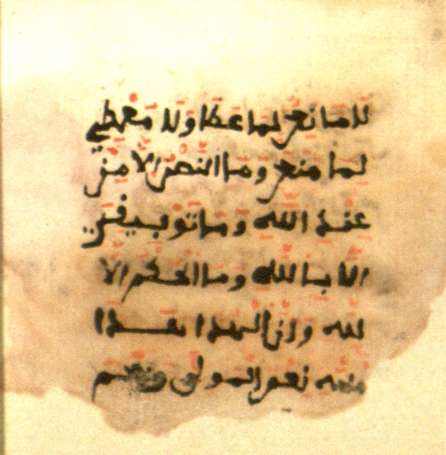 لا مانع لما عطا ولا معطي
لما منع وما النصر الا من
عند الله وما توفيقي
الا بالله وما الحكم الا
لله وان الهدا
نعم المولى ونعم